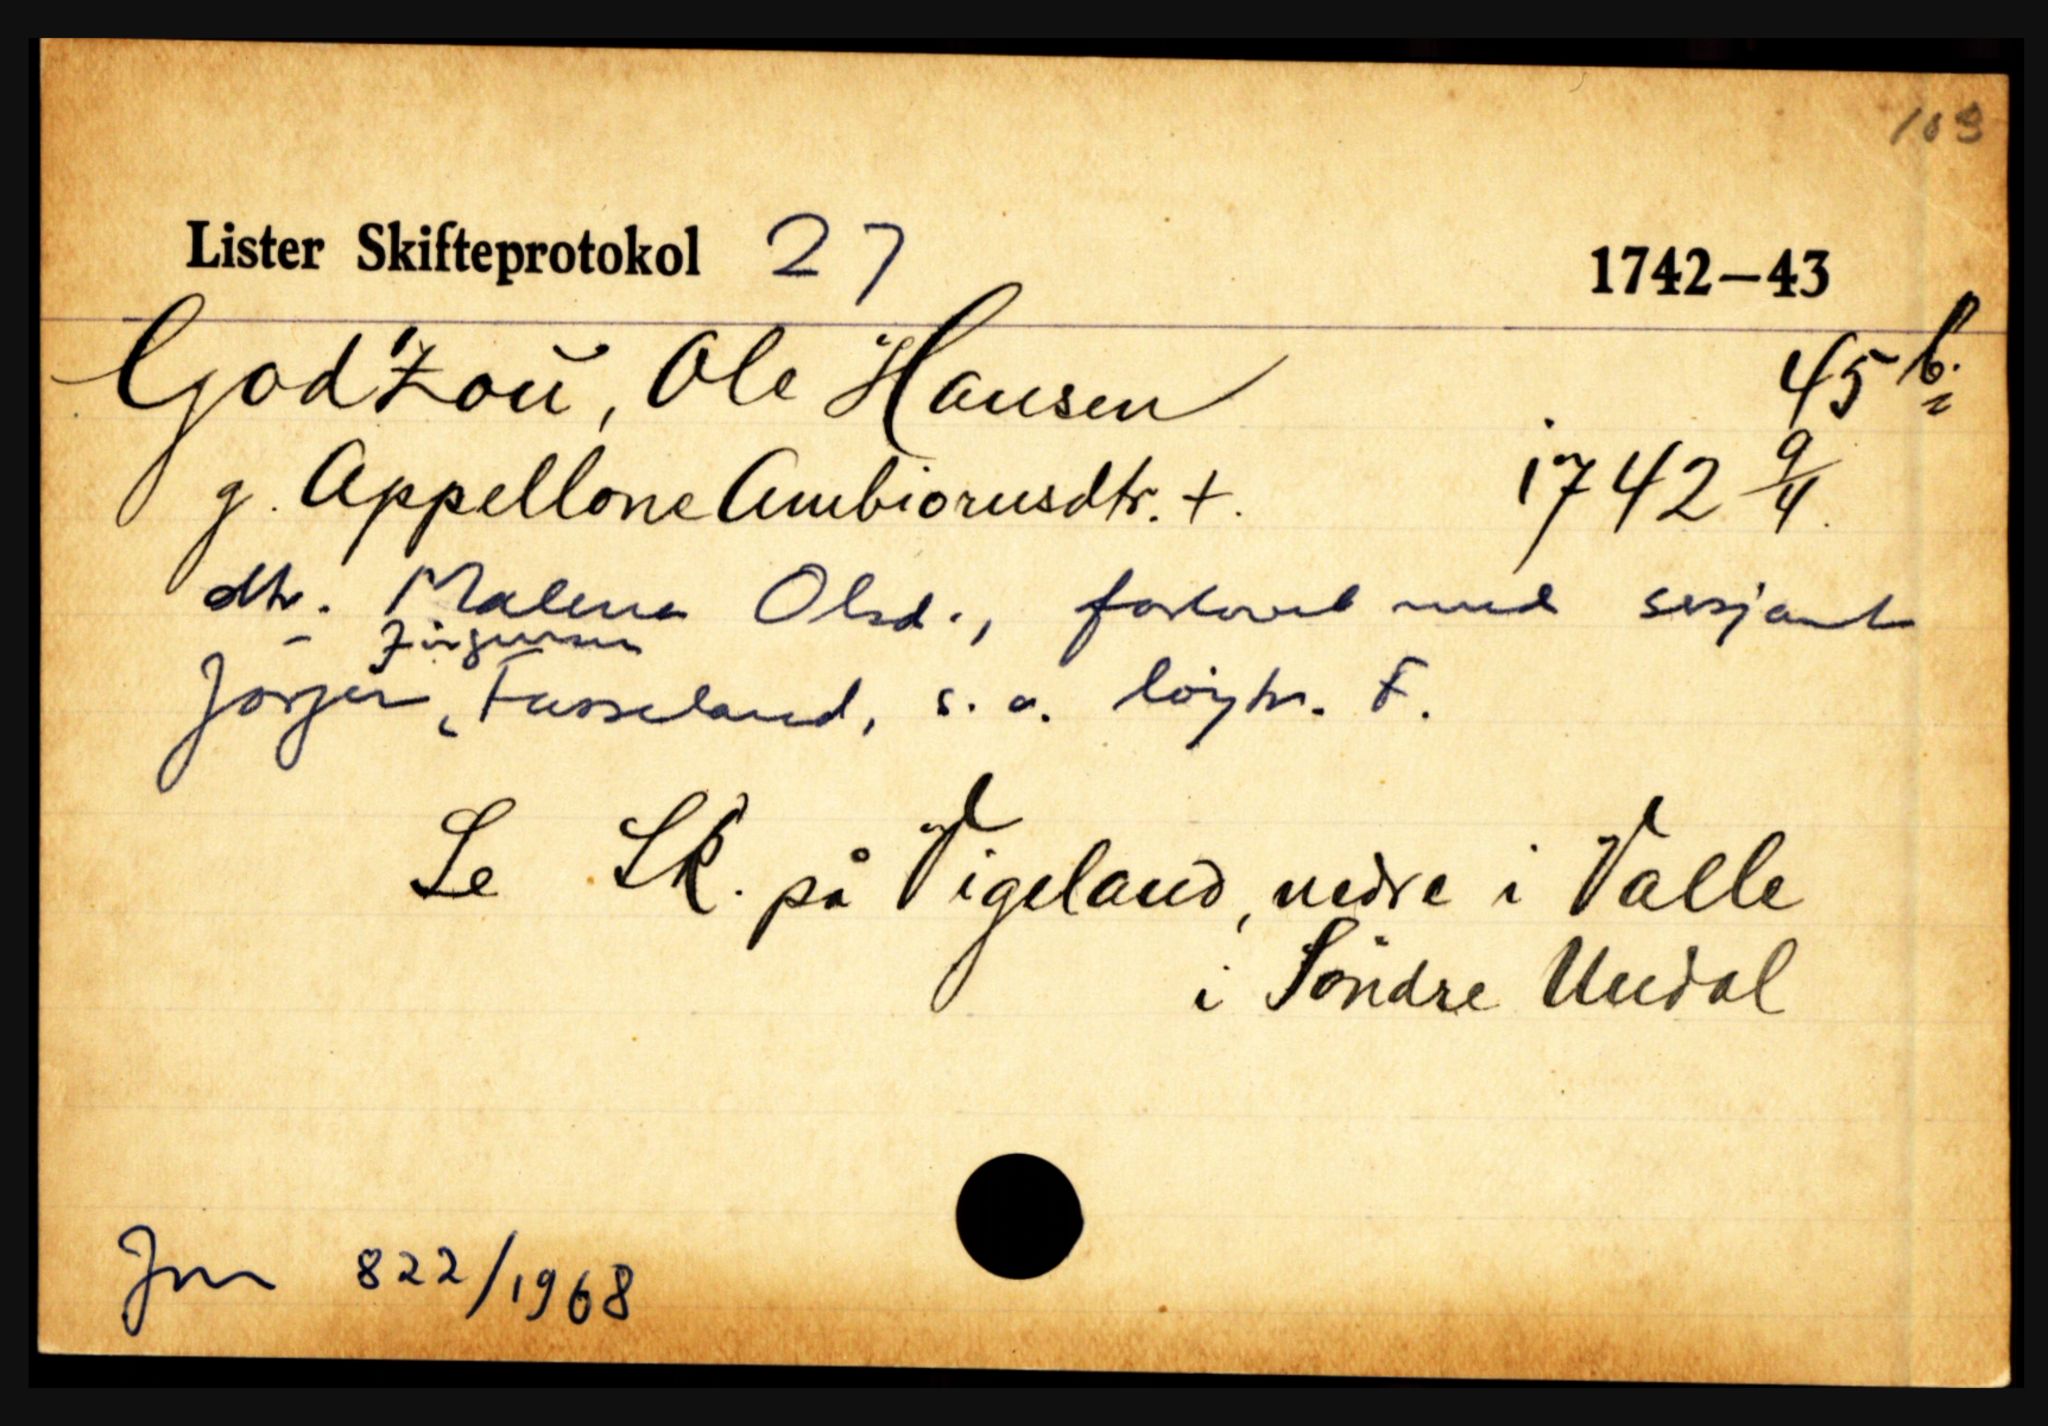 109
Lister Skifteprotokol 27 1742–43
Godtzou, Ole Hansen 45 b.
g. Appellone Ambiorusdtr. +. 1742 9/4.
dtr. Malena Olsd., forlovet med sersjant
Jørgen Jürgensen Fasseland, s. a. løytn. F.
Se Sk. på Vigeland, nedre i Valle
i Söndre Undal
Jnr 822/1968